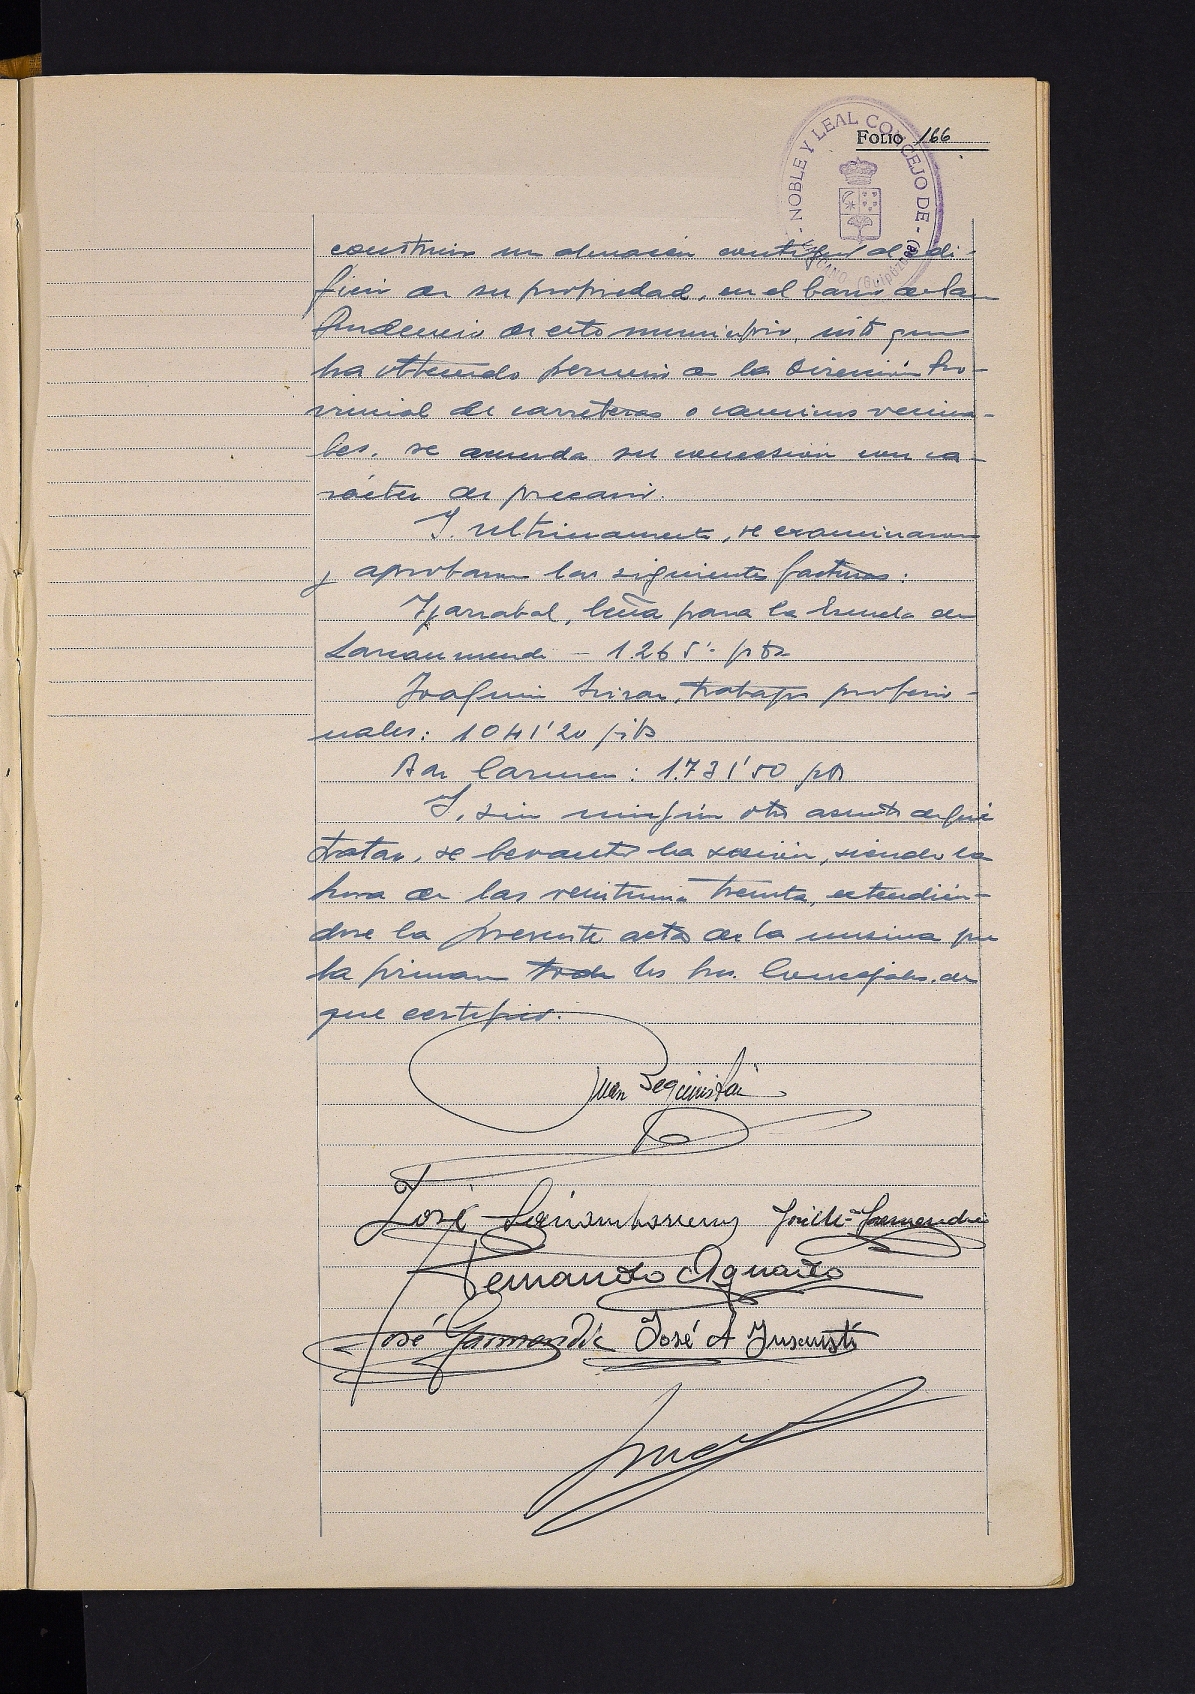 FOLIO 166
NOBLE Y LEAL CONCEJO DE
construir un almacen contiguo al edi-
ficio de su propiedad, en el barrio de
de este municipio, visto que
ha obtenido permiso de la Dirección Pro-
vincial de carreteras o caminos vecina-
les, se acuerda su concesión con ca-
rácter de precario.
Y, ultimamente, se examinaron
y aprobaron las siguientes facturas:
leña para la Escuela de
Larraumendi - 1.265'- pts
Joaquin trabajos profesio-
nales: 1041'20 pts
Bar Carmen: 1.731'50 pts
Y, sin ningún otro asunto de que
tratar, se levantó la sesión, siendo la
hora de las veintiuna treinta, extendién-
dose la presente acta de la misma que
la firman los Srs. Concejales, de
que certifico.
Juan Beguiristain
José
Fernando Aguado
José Garmendia José A